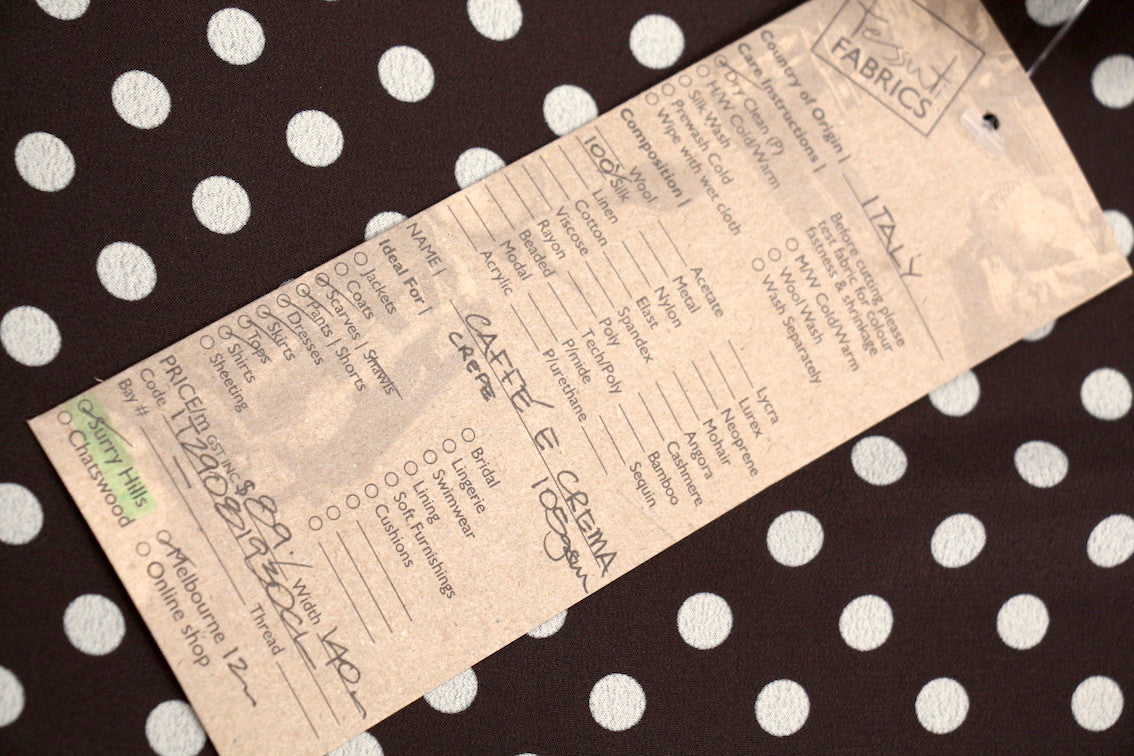 Tessuti
FABRICS
Country of Origin | ITALY
Care Instructions |
Before cutting please
test fabric for colour
fastness & shrinkage
Dry Clean (P)
H/W Cold/Warm
Silk Wash
Prewash Cold
Wipe with wet cloth
M/W Cold/Warm
Wool Wash
Wash Separately
Composition |
Wool
100% Silk
Linen
Cotton
Viscose
Rayon
Beaded
Modal
Acrylic
Acetate
Metal
Nylon
Elast
Spandex
Poly
Tech/Poly
P/mide
P/urethane
Lycra
Lurex
Neoprene
Mohair
Angora
Cashmere
Bamboo
Sequin
NAME | CAFFE E CREMA
CREPE 108gsm
Ideal For |
Jackets
Coats
Scarves | Shawls
Pants | Shorts
Dresses
Skirts
Tops
Shirts
Sheeting
Bridal
Lingerie
Swimwear
Lining
Soft Furnishings
Cushions
PRICE/m GST INC $89./ Width 140
Code
Thread
Bay #
Surry Hills
Chatswood
Melbourne 12m
Online shop